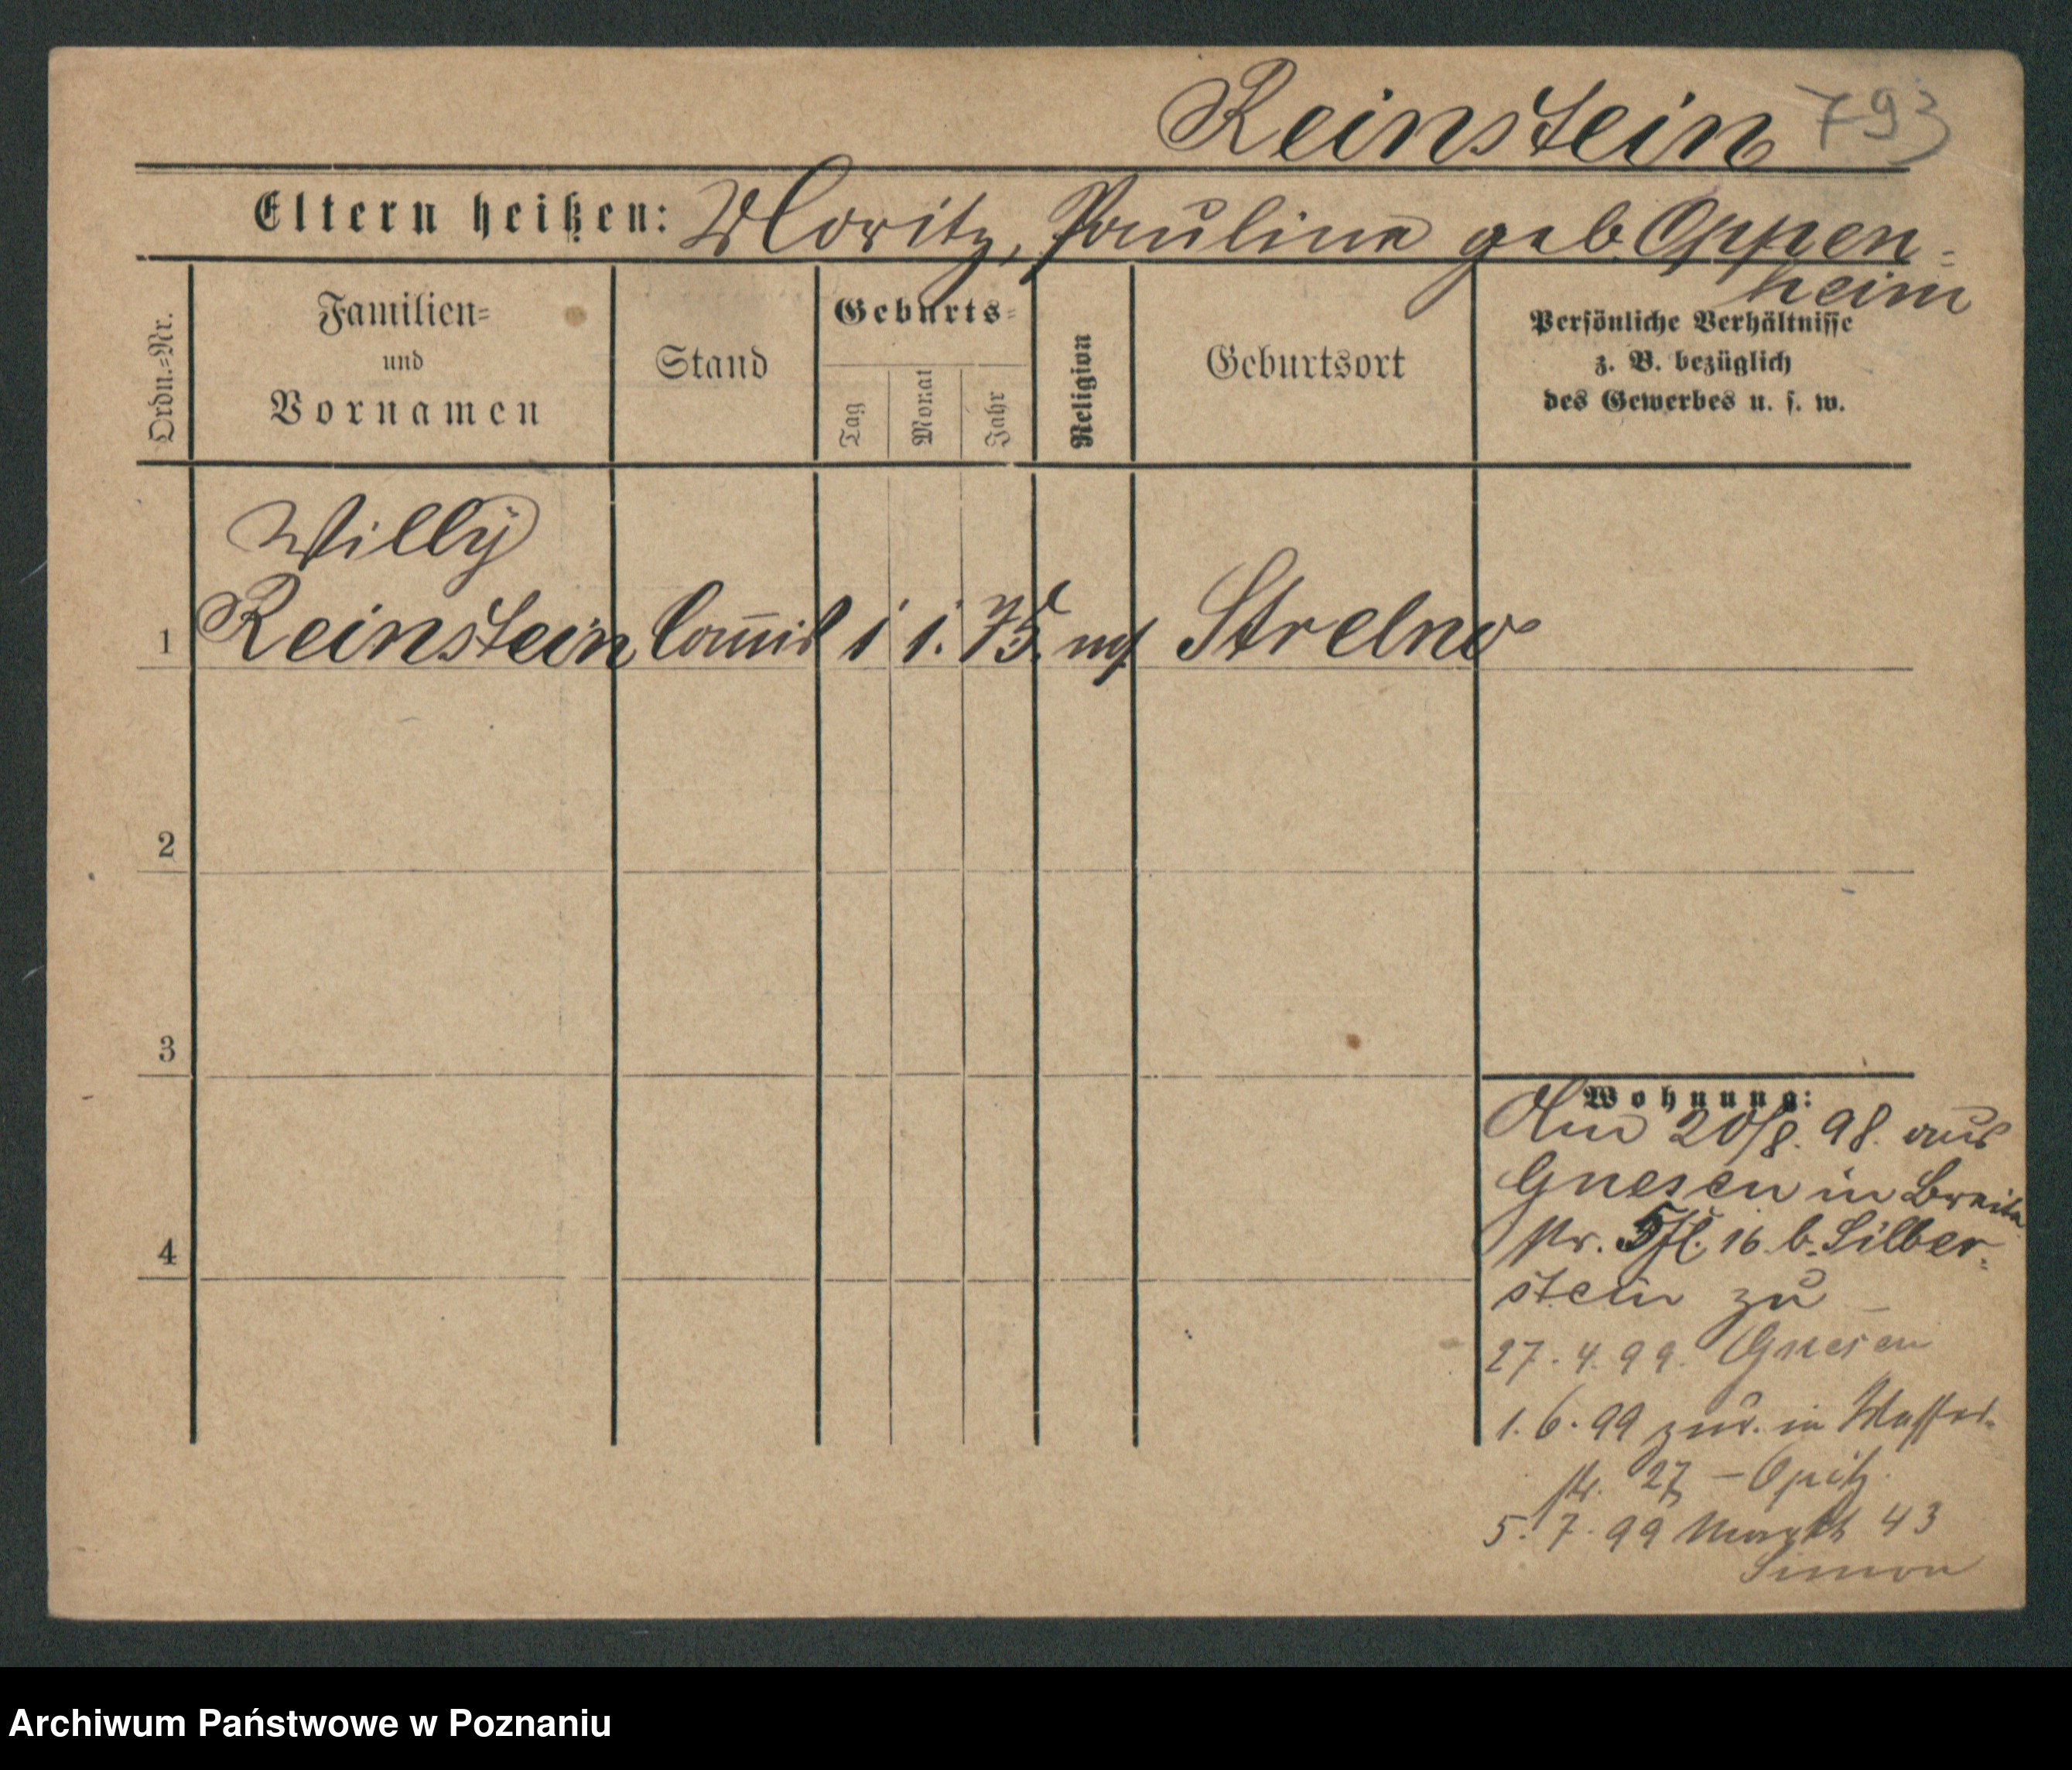 Reinstein 793
Eltern heißen: Moritz, Pauline geb. Oppen=
heim
Ordn.=Nr.
Familien=
und
Vornamen
Stand
Geburts=
Tag
Monat
Jahr
Religion
Geburtsort
Persönliche Verhältnisse
z. B. bezüglich
des Gewerbes u. s. w.
Willy
1 Reinstein Com̅is 1 1. 75. Strelno
2
3
4
Wohnung:
20/8. 98. aus
Gnesen in Breite
str. 16 b. Silber=
stein zu
27. 4. 99. Gnesen
1. 6. 99 zur. in Wasser-
str. 27 – Opitz
5. 7. 99 Markt 43
Simon
Archiwum Państwowe w Poznaniu